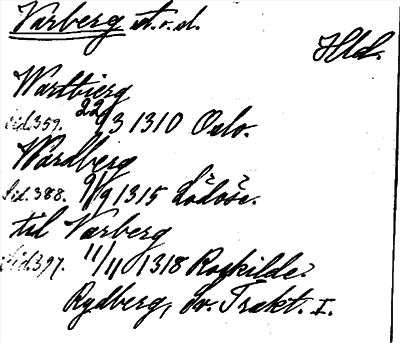 Varberg st. o. sl.
Hld.
Wartbierg
Sid. 359. 22/3 1310 Oslo.
Wardberg
Sid. 388. 9/9 1315 Lödöse.
til Varberg
Sid. 397. 11/11 1318 Roskilde.
Rydberg, Sv. Trakt. I.